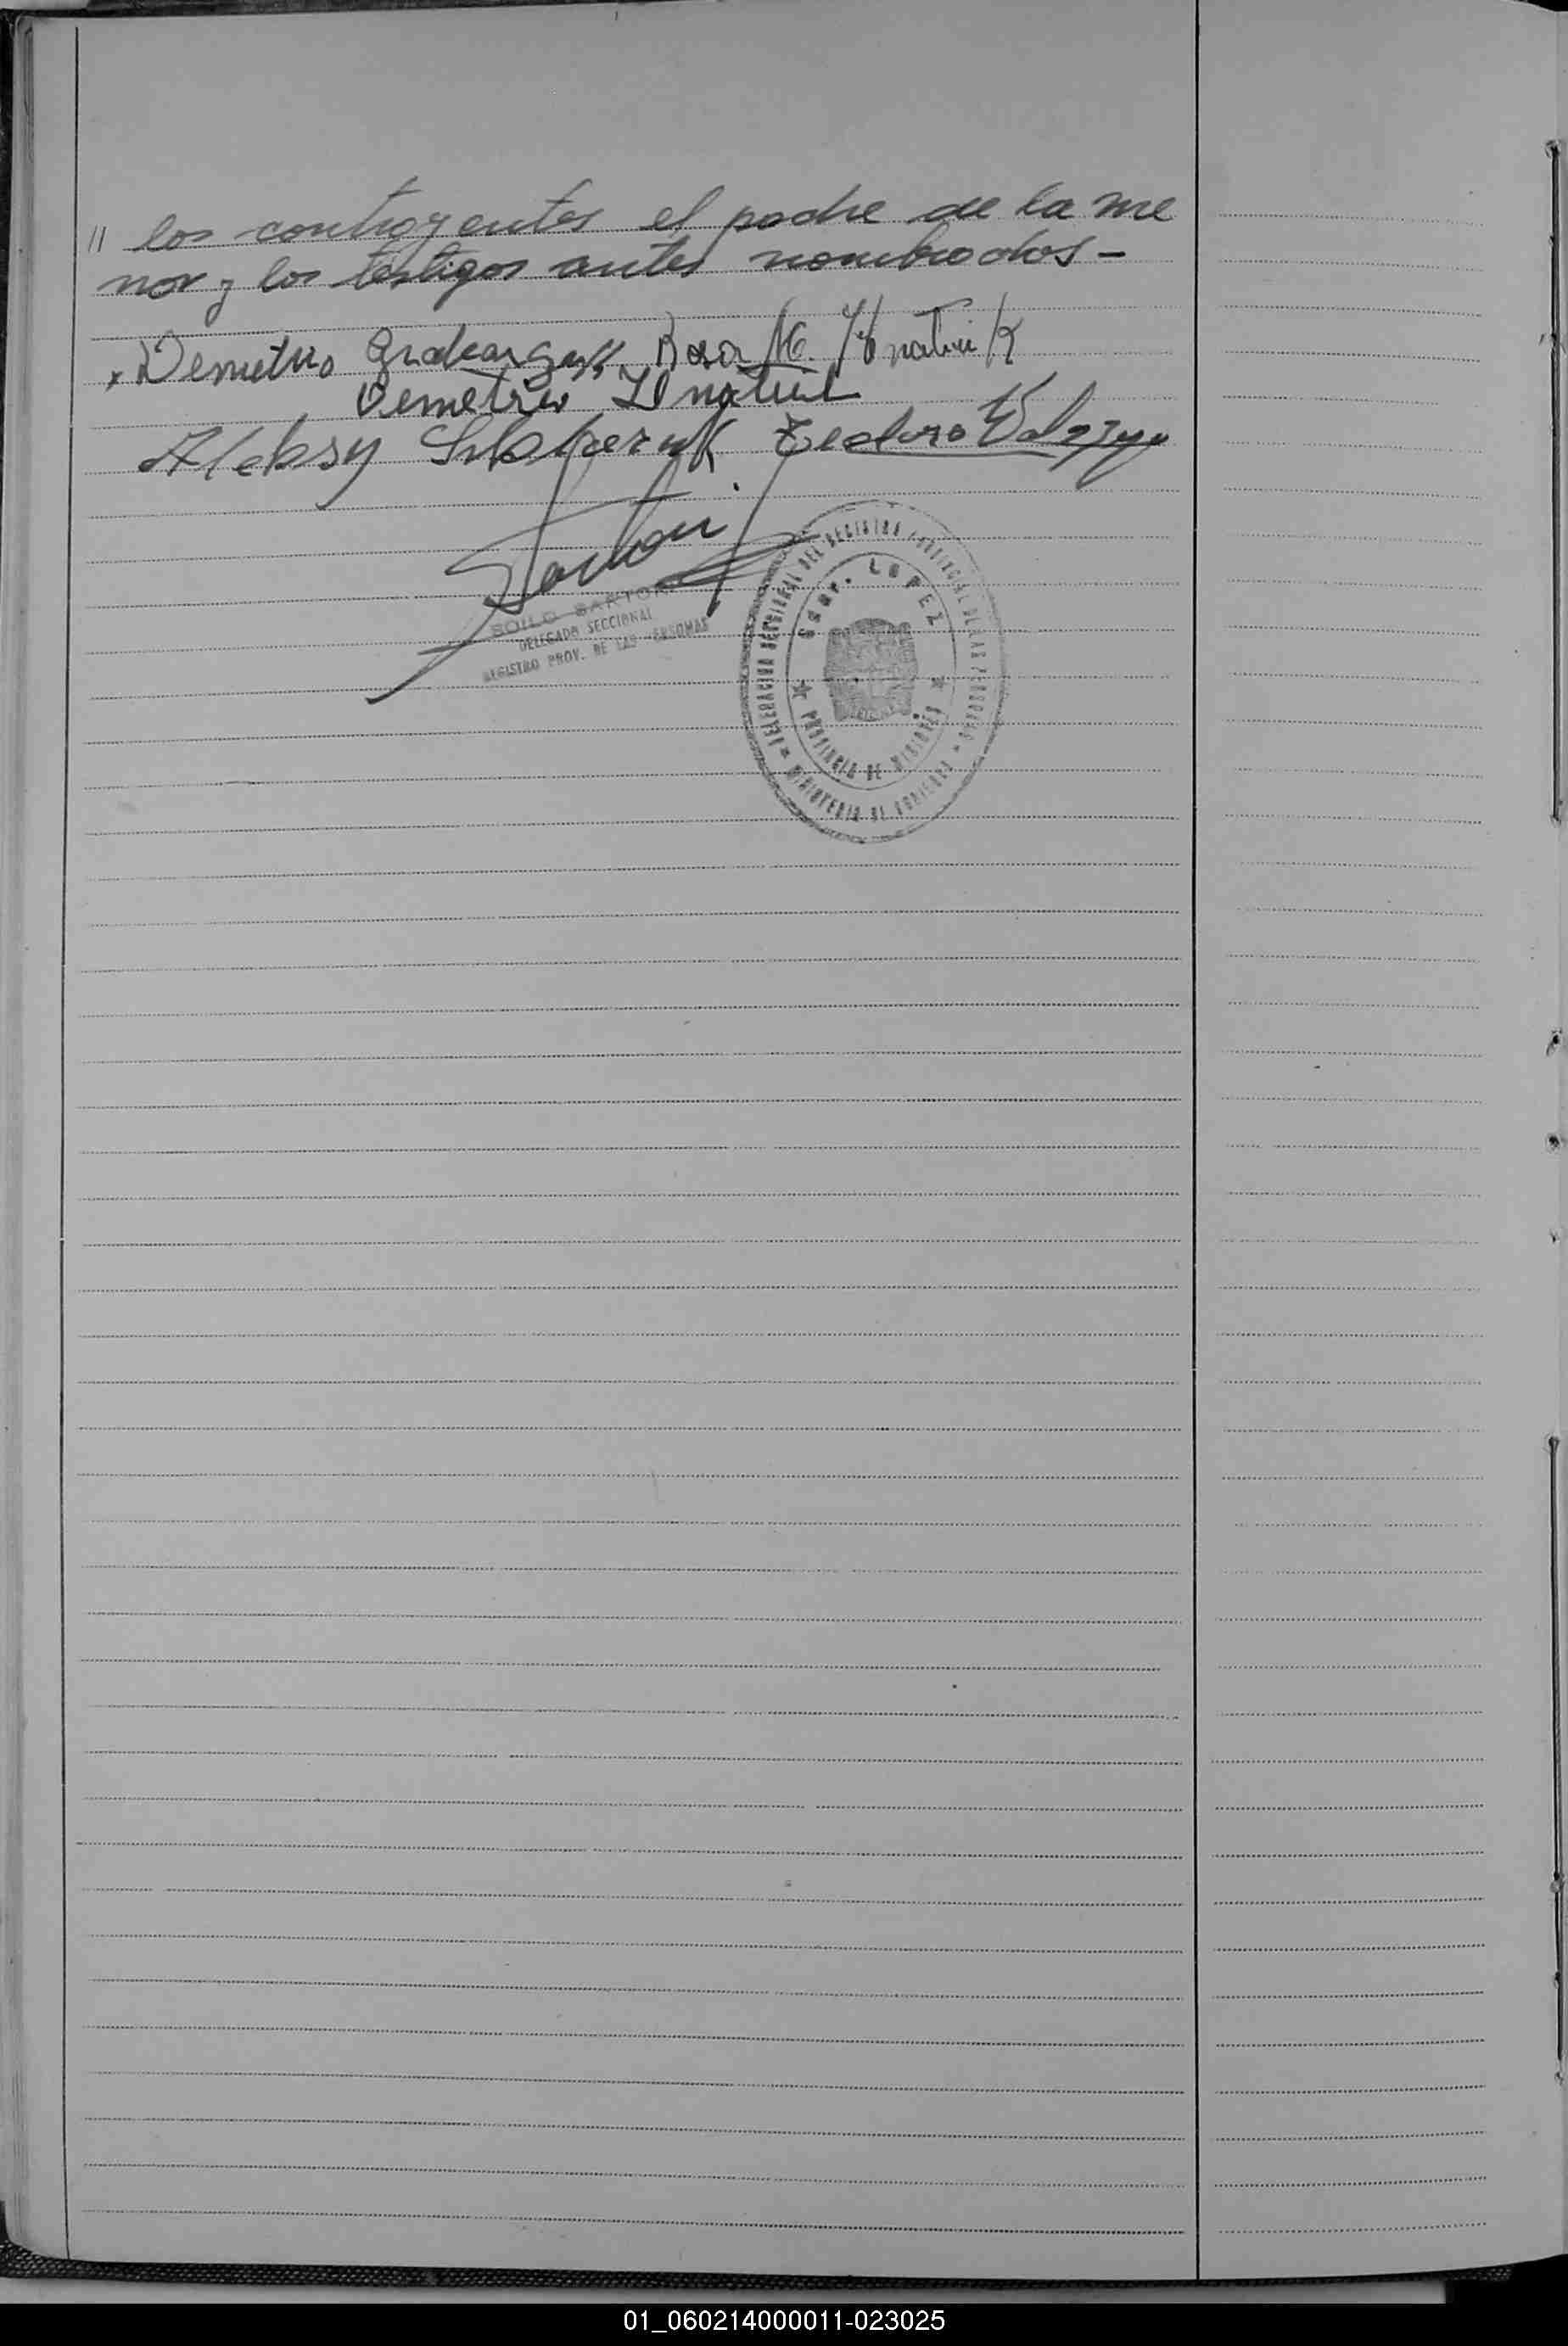 " los contrayentes el padre de la me
nor y los testigos antes nombrados -
Demetrio Rosa M. Ihnatiuk
Demetrio Ihnatiuk
Aleksy Teodoro
SOILO SARTORI
DELEGADO SECCIONAL
REGISTRO PROV. DE LAS PERSONAS
DELEGACION SECCIONAL DEL REGISTRO PROVINCIAL DE LAS PERSONAS
GDOR. LOPEZ
PROVINCIA DE MISIONES
MINISTERIO DE GOBIERNO
01_060214000011-023025